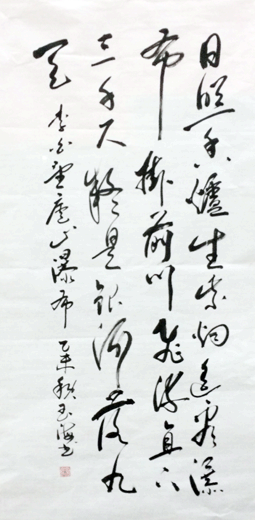 日照香炉生紫烟遥看瀑
布挂前川飞流直下
三千尺疑是银河落九
天 李白望庐山瀑布 乙未秋玉海书